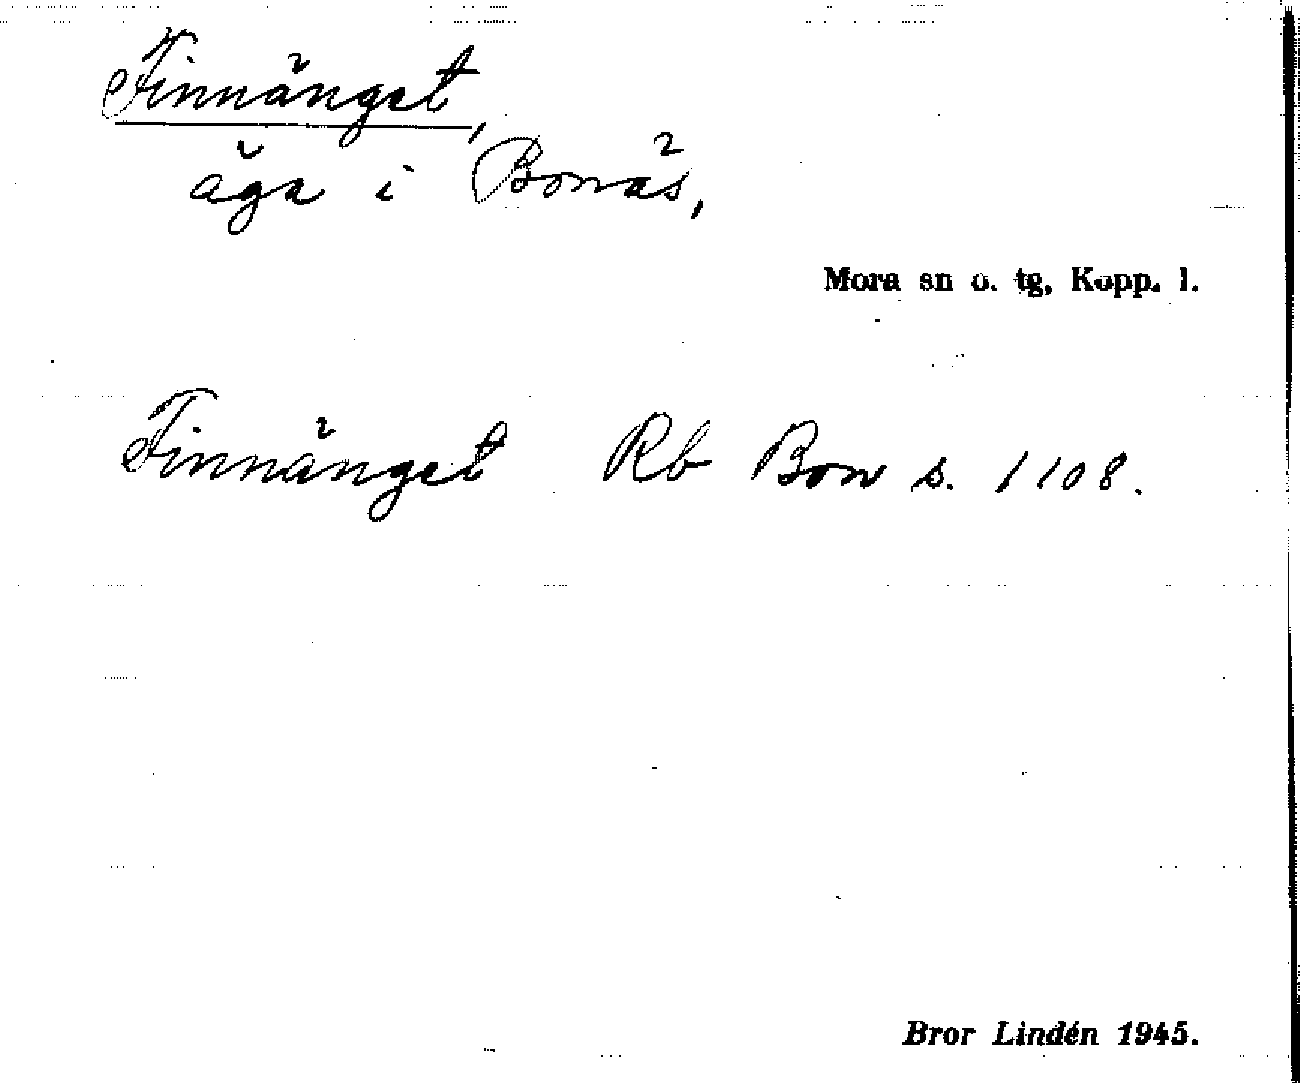 Finnänget,
äga i Bonäs,
Mora sn o. tg, Kopp. l.
Finnänget Rb Bon s. 1108.
Bror Lindén 1945.